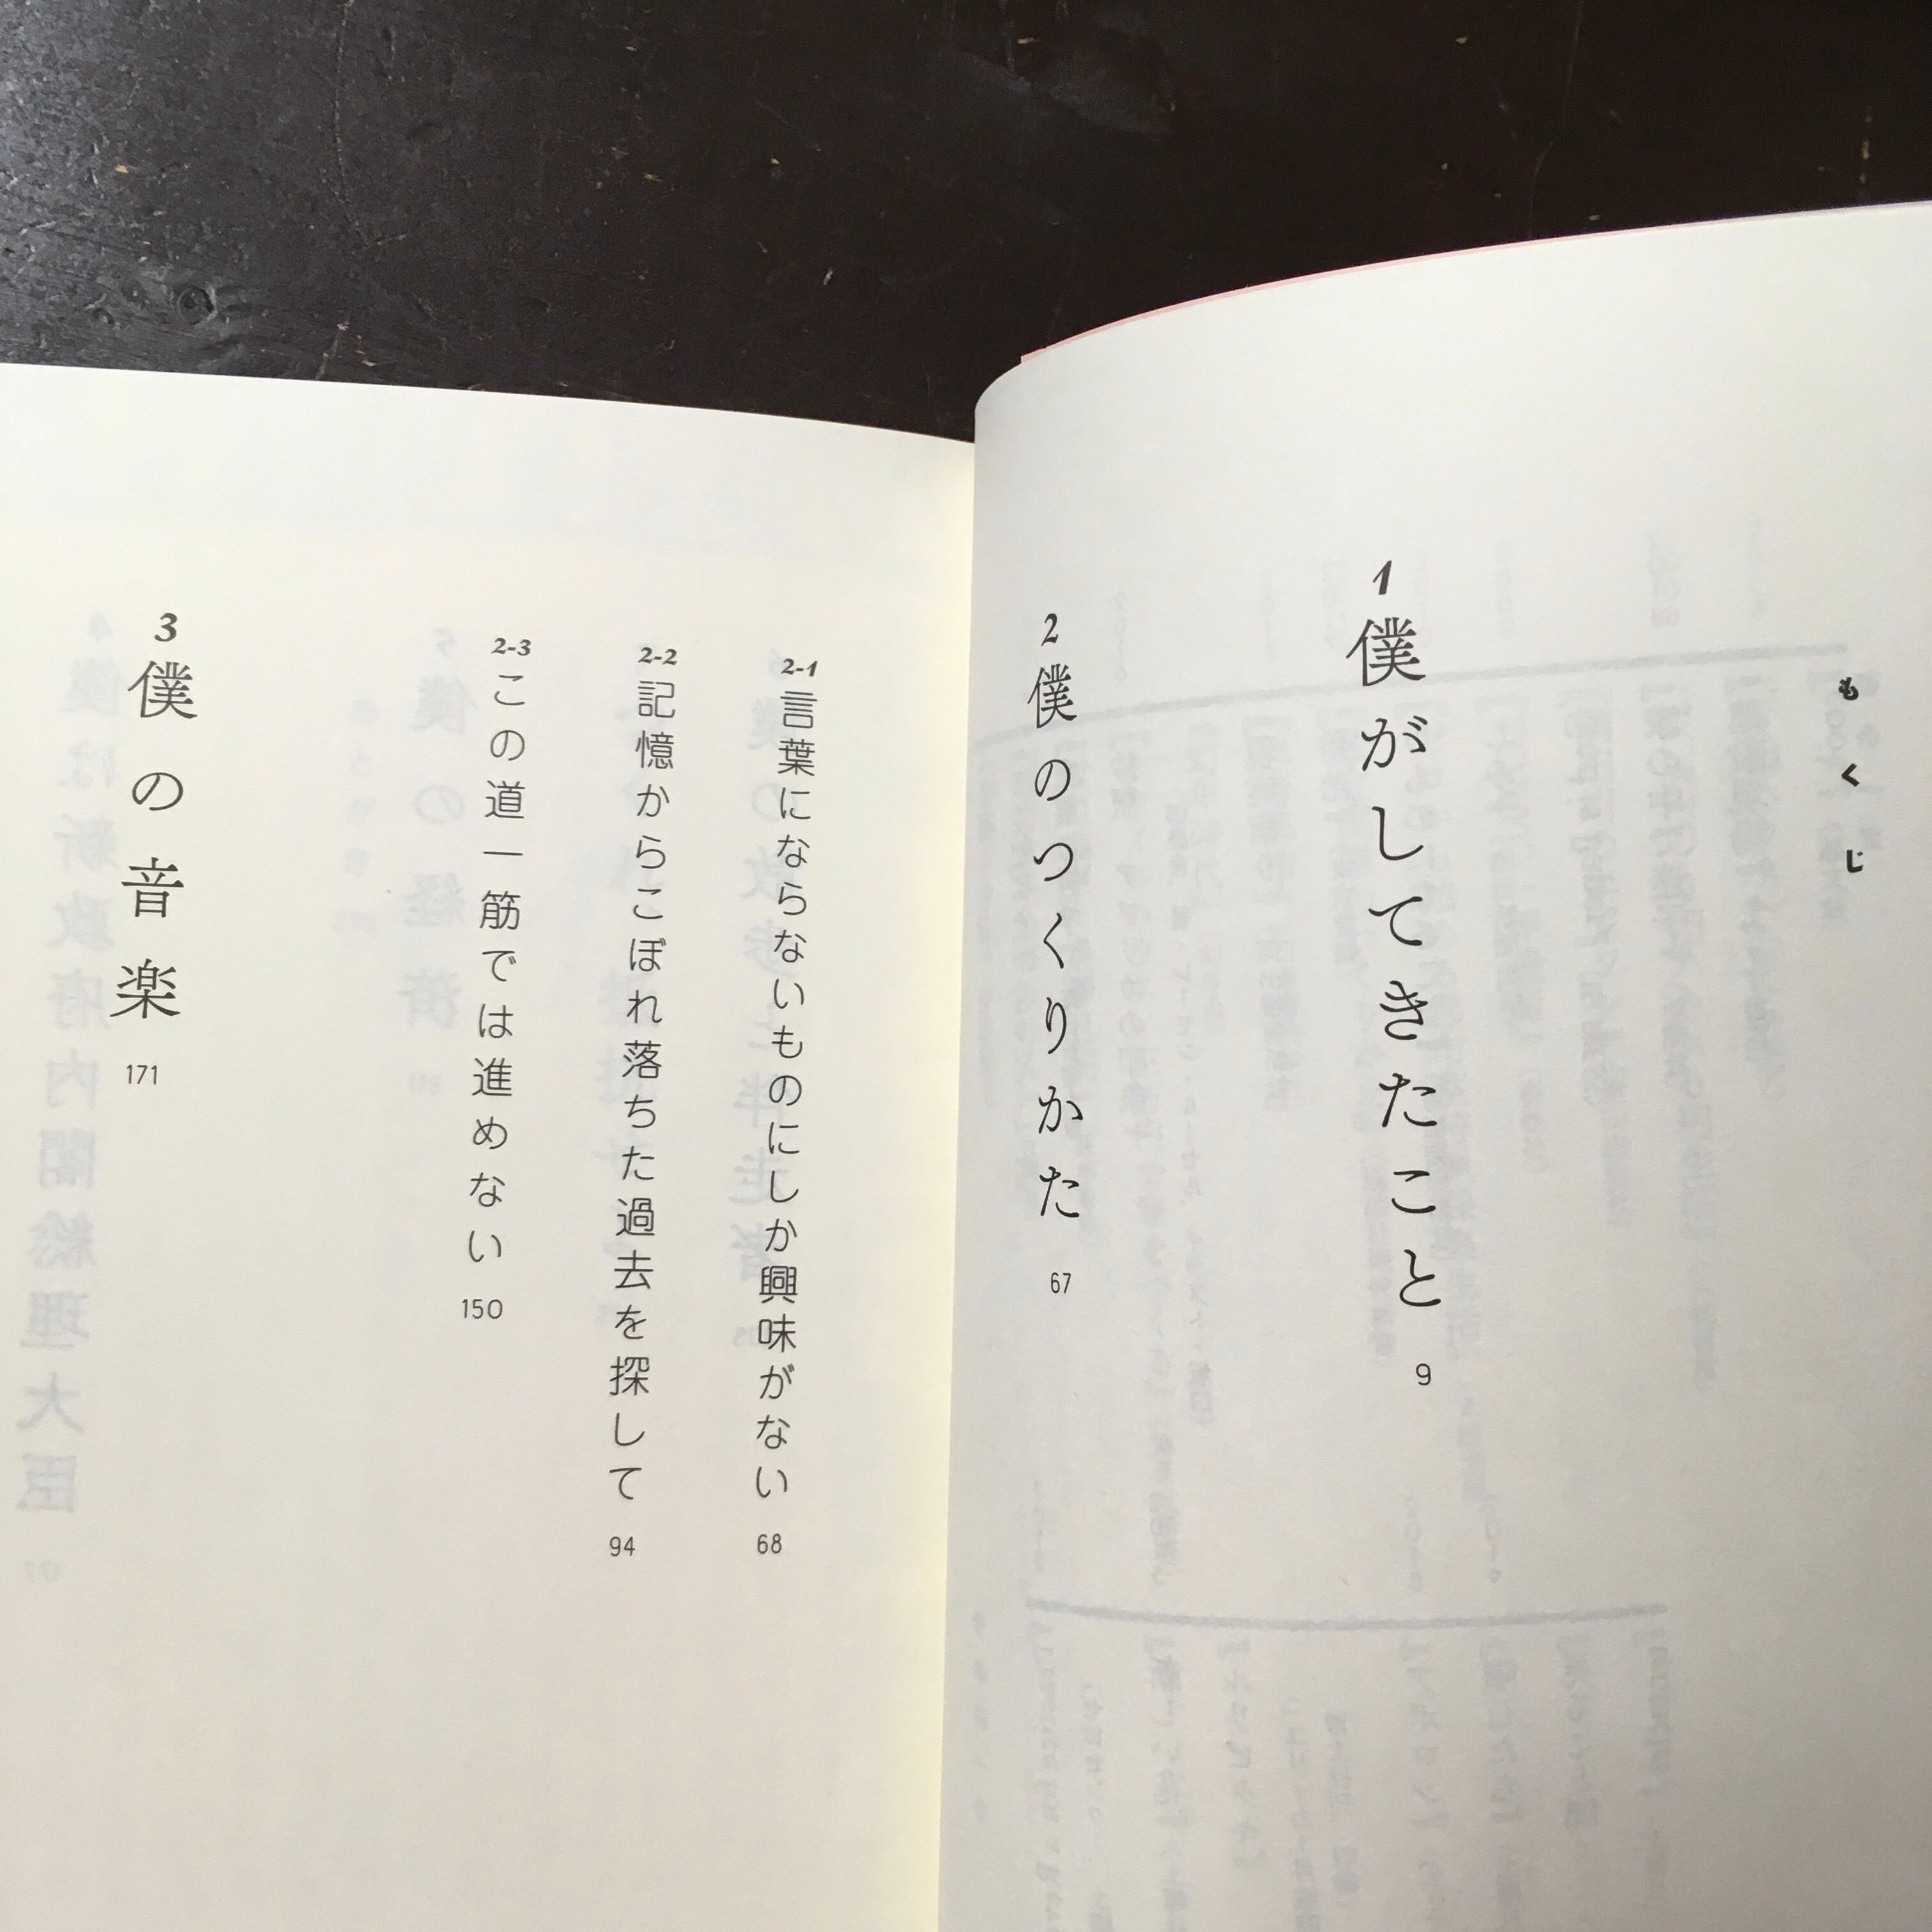 もくじ
1 僕がしてきたこと 9
2 僕のつくりかた 67
2-1 言葉にならないものにしか興味がない 68
2-2 記憶からこぼれ落ちた過去を探して 94
2-3 この道一筋では進めない 150
3 僕の音楽 171